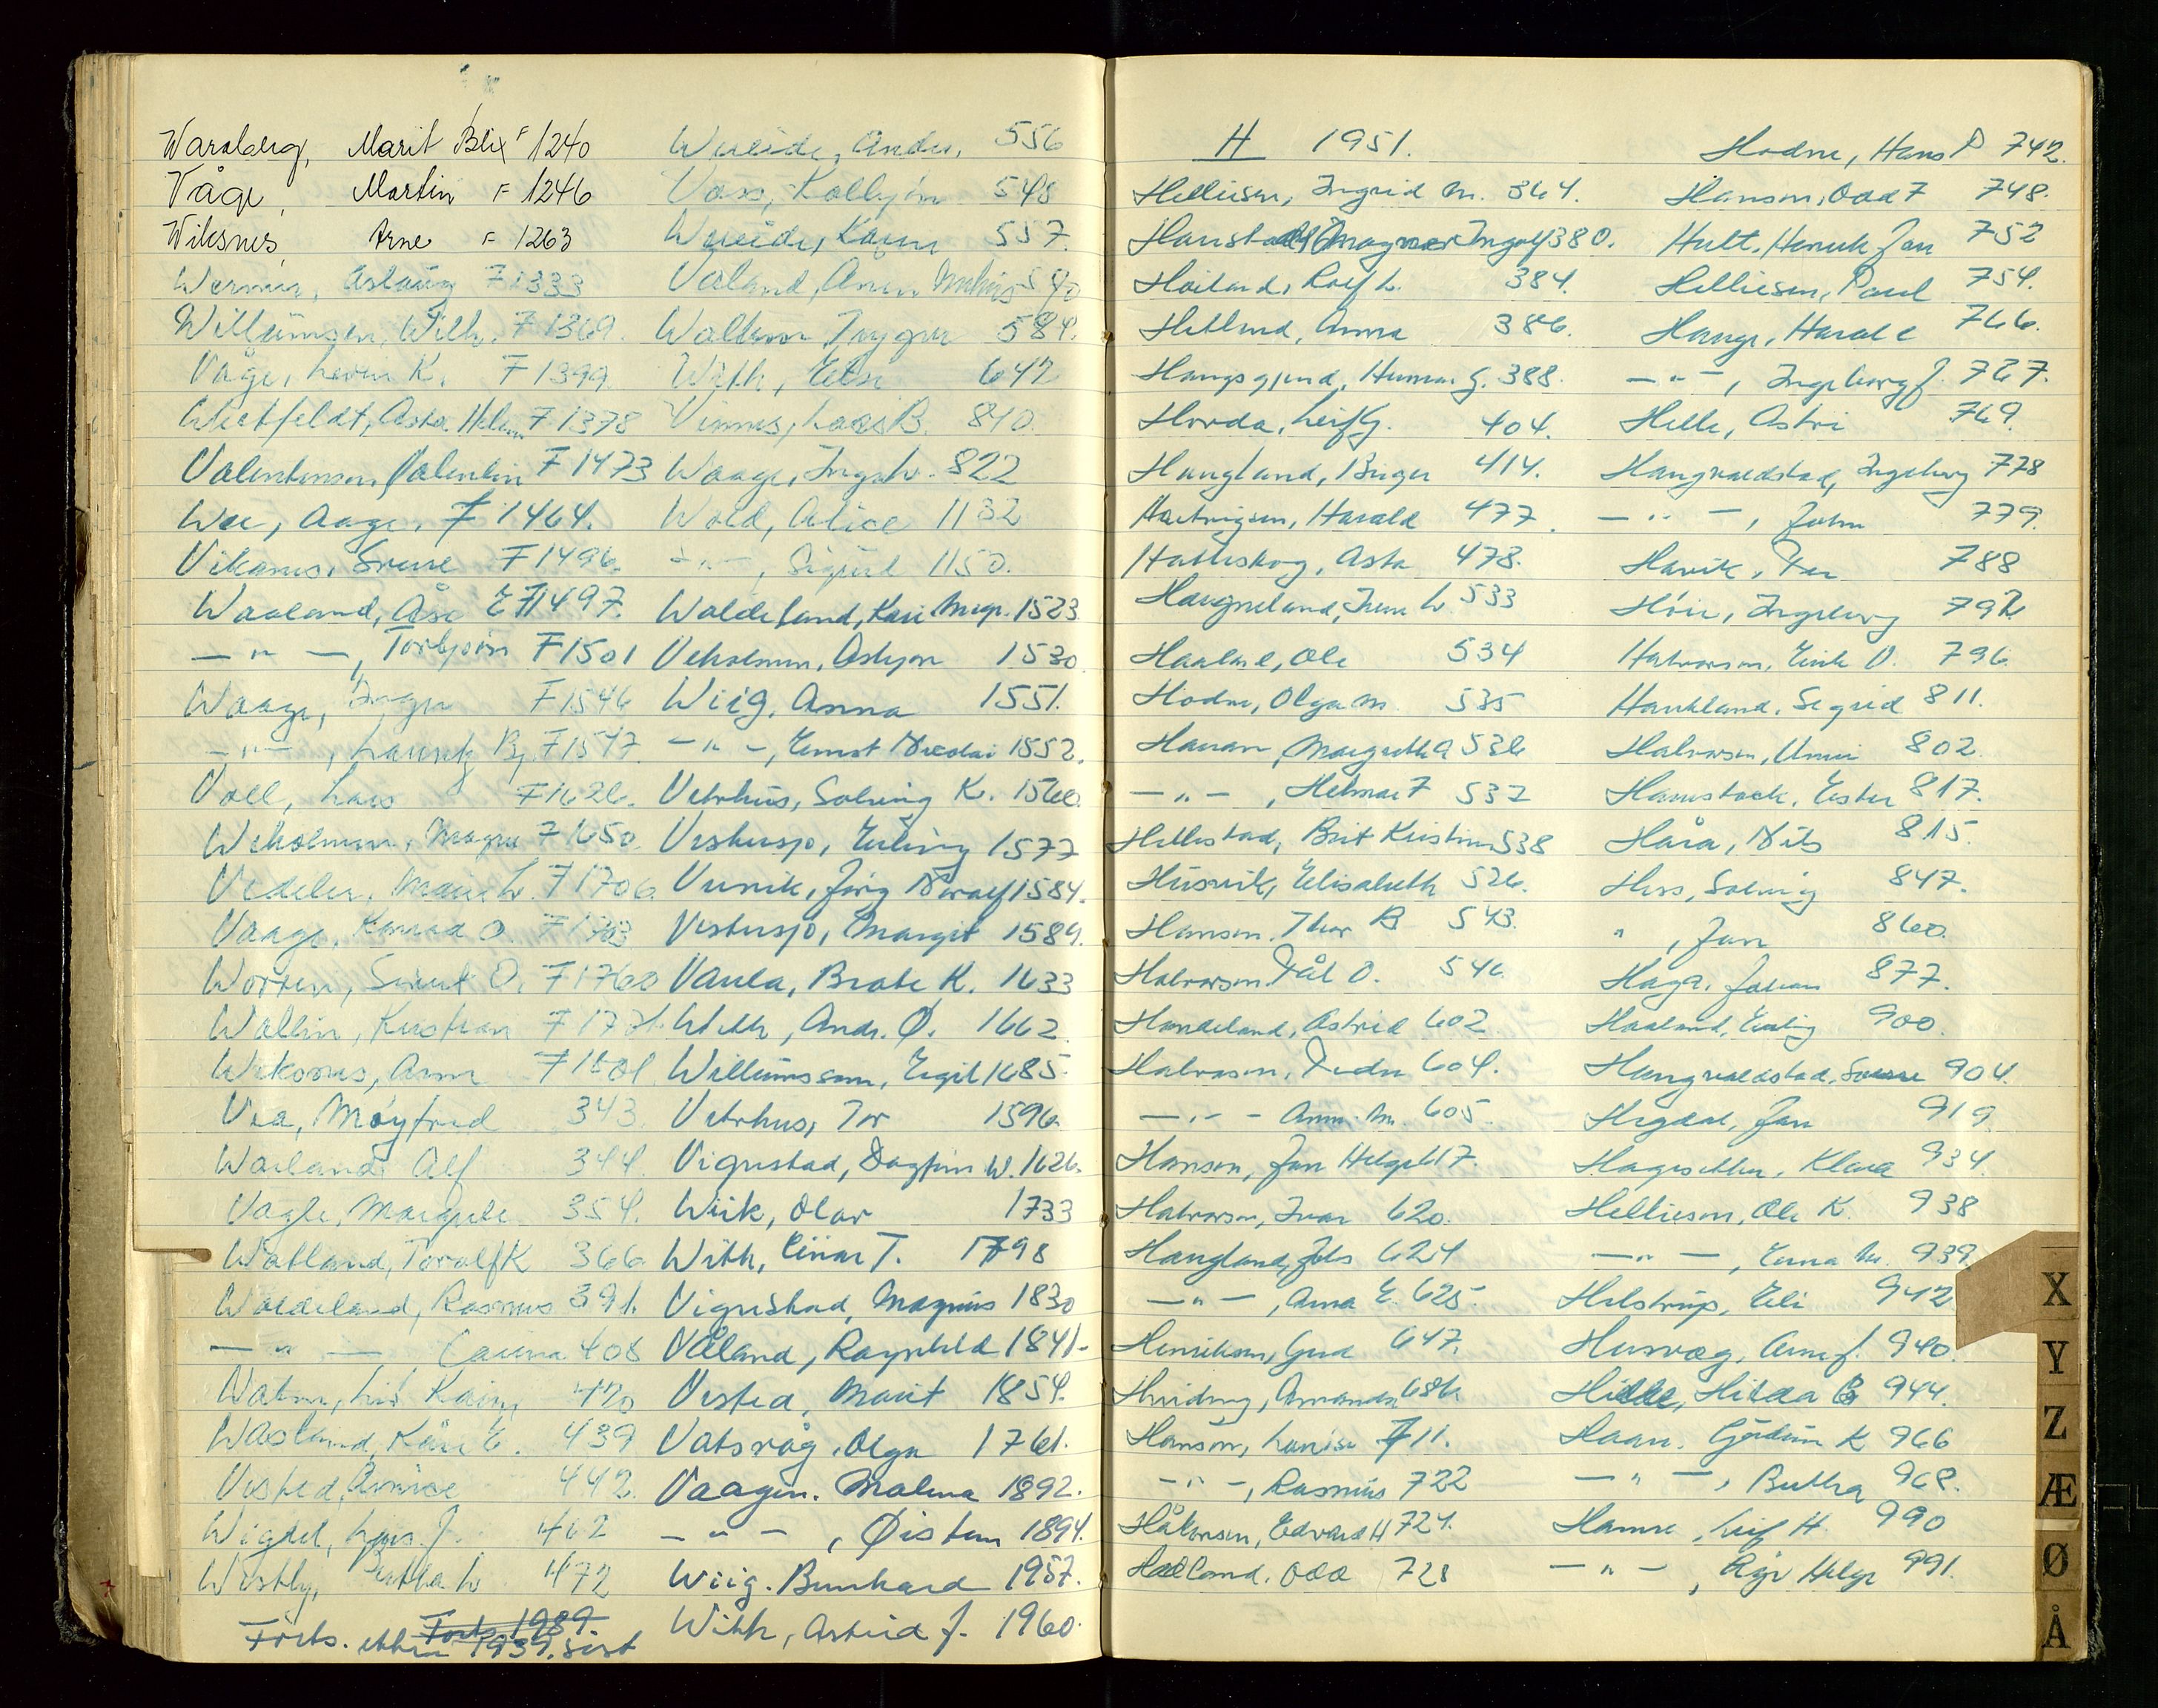 Warsberg, Marit Blix F 1240
Våge, Martin F 1246
Wiksnes, Arne F 1263
Werner, Aslaug F 1333
Willumsen, Wilh. F 1369.
Våge, K. F 1399
Asta F 1378
Valentinsen, Valentin F 1473
Wee, Aage, F 1464.
Vikanes, Sverre F 1496.
Waaland, Åse E F 1497.
— " —, Torbjörn F 1501
Waage, Inger F 1546
— " —, Bj. F 1547.
Voll, Lars F 1626.
Weholmen, Magne F 1650.
Vedeler, L. F 1706.
Vaage, Konrad O. F
Worren, O. F 1760
Wallin, Kristian F
Wiksnes, Arne F
Vea, Møyfrid 343.
Waland, Alf 344.
Vagle, Margrete 354.
Watland, Toralf K 366
Waldeland, Rasmus 391.
— " — 408
Karin 420
Wasland, Kåre E. 439
Vested, 442.
Wigdel, J. 462
Westby, L 472
Forts. 1989.
Forts. etter 1939. sist
Wereide, Anders, 556
Voss, Kolbjörn 548
Wereide, Karen 557.
Våland, Anna
Trygve 584.
With, Else 642
Vinnes, Lars B. 840.
Waage, Ingolv. 822
Wold, Alice 1132
— " —, Sigurd 1150.
Waldeland, Kari Magn. 1523
Veholmen, Asbjørn 1530
Wiig, Anna 1551.
— " —, Ernst Nicolai 1552.
Vetrhus, Solveig K. 1560.
Vestersjø, Erling 1577
Vervik, Jörg 1584.
Vestersjø, Margit 1589.
Vaula, Brate K. 1633
With, Andr. Ø. 1662.
Willumssen, Egil 1685
Vetrhus, Tor 1596.
Vigrestad, Dagfinn W. 1626.
Wiik, Olav 1733
With, Einar T. 1798
Vigrestad, Magnus 1830
Våland, Ragnhild 1841.
Vested, Marit 1854.
Vatsvåg, Olga 1761.
Vaagen, Malena 1892.
— " —, Øistein 1894.
Wiig, Bernhard 1957.
With, Astrid J. 1960.
H 1951.
Helliesen, Ingrid M. 364.
Hanstad, Ingolf 380.
Høiland, Rolf L. 384.
Hetland, Anna 386.
Haugsgjerd, G. 388.
Horda, Leif G. 404.
Haugland, Birger 414.
Hartvigsen, Harald 477.
Hatteskog, Asta 478.
Haugneland, Irene L. 533
Haaland, Ole 534
Hodne, Olga M. 535
Hanan, Margretha 536
— " —, Helmer F 537
Hellestad, Brit Kristine 538
Husvik, Elisabeth 526.
Hansen, Thor B 543.
Halvorsen, Pål O. 546.
Handeland, Astrid 602
Halvorsen, Peder 604.
— " — Anna M. 605.
Hansen, Jan Helge 617.
Halvorsen, Ivar 620.
Haugland, Johs 624
— " —, Anna E. 625.
Henriksen, Gerd 647.
Hviding, Amanda 686
Hansen, Lovise 711.
— " —, Rasmus 722
Håkonsen, Edvard H 724.
Haaland, Odd 728
Hodne, Hans P 742.
Hansen, Odd F 748.
Hult, Henrik Jan 752
Helliesen, Paul 754.
Hauge, Harald 766.
— " —, Ingeborg J. 767.
Helle, Astri 769.
Haugvaldstad, Ingeborg 778
— " —, John 779.
Havik, Per 788
Høie, Ingeborg 792
Halvorsen, Eirik O. 796.
Haukland, Sigrid 811.
Halvorsen, Unni 802.
Hamstock, Ester 817.
Håra, Nils 815.
Hess, Solveig 847.
", Jan 860.
Haga, Johan 877.
Haaland, Erling 900.
Haugvaldstad, Sverre 904.
Hegdal, Jan 919
Klara 934.
Helliesen, Ole K. 938
— " —, Erna M. 939.
Helstrup, Eli 942
Husvæg, Arne J. 940.
Hille, Hilda B 944.
Haan, Gudrun K 966
— " —, Bertha 968.
Hamre, Leif H. 990
— " —, Helge 991.
X
Y
Z
Æ
Ø
Å